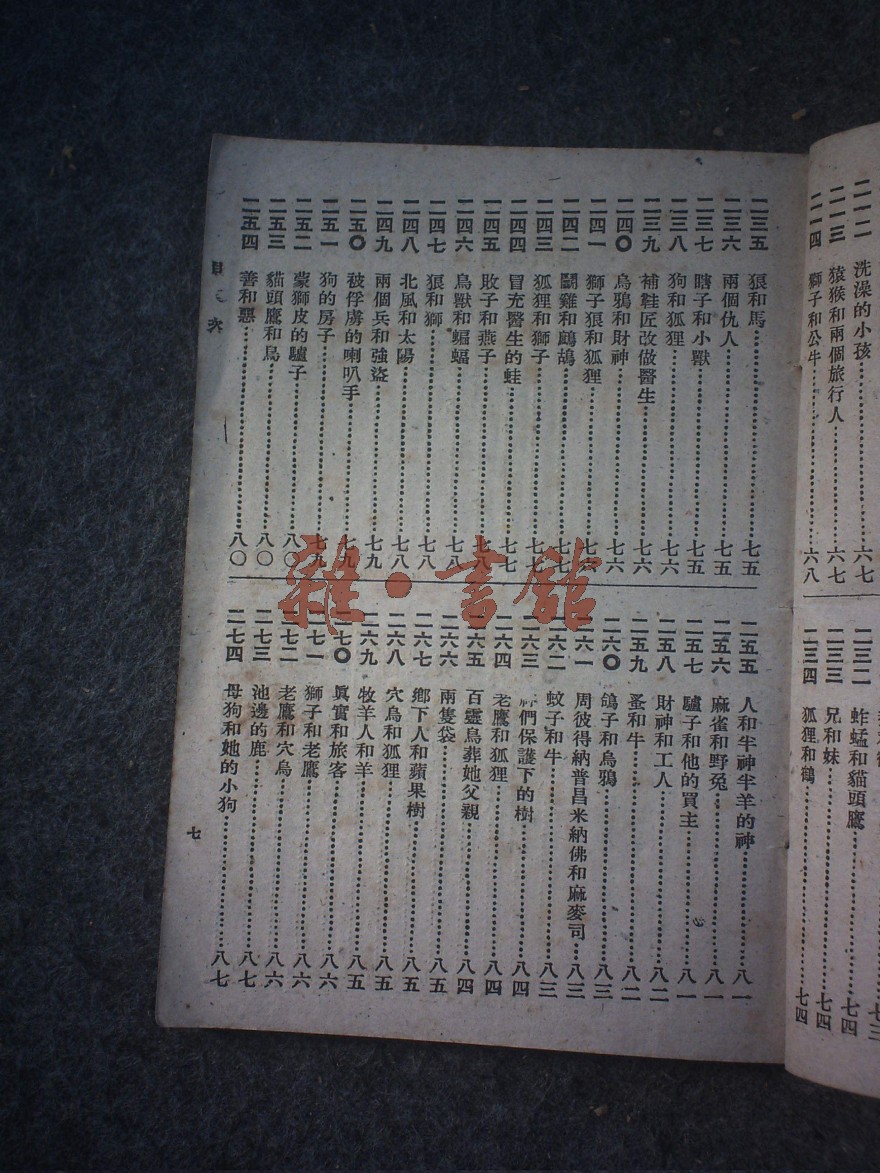 二一二 洗澡的小孩 六七
二一三 猿猴和兩個旅行人 六七
二一四 獅子和公牛 六八
二三二 蚱蜢和貓頭鷹 七四
二三三 兄和妹 七四
二三四 狐狸和鶴 七四
二三五 狼和馬 七五
二三六 兩個仇人 七五
二三七 瞎子和小獸 七五
二三八 狗和狐狸 七六
二三九 補鞋匠改做醫生 七六
二四〇 烏鴉和財神 七六
二四一 獅子狼和狐狸 七六
二四二 鬭雞和鷓鴣 七七
二四三 狐狸和獅子 七七
二四四 冒充醫生的蛙 七七
二四五 敗子和燕子 七八
二四六 鳥獸和蝙蝠 七八
二四七 狼和獅 七八
二四八 北風和太陽 七八
二四九 兩個兵和強盜 七九
二五〇 被俘虜的喇叭手 七九
二五一 狗的房子 七九
二五二 蒙獅皮的驢子 八〇
二五三 貓頭鷹和鳥 八〇
二五四 善和惡 八〇
二五五 人和半神半羊的神 八一
二五六 麻雀和野兔 八一
二五七 驢子和他的買主 八一
二五八 財神和工人 八二
二五九 蚤和牛 八二
二六〇 鴿子和烏鴉 八三
二六一 周彼得納普昌米納佛和麻麥司 八三
二六二 蚊子和牛 八三
二六三 們保護下的樹 八四
二六四 老鷹和狐狸 八四
二六五 百靈鳥葬她父親 八四
二六六 兩隻袋 八五
二六七 鄉下人和蘋果樹 八五
二六八 穴鳥和狐狸 八五
二六九 牧羊人和羊 八五
二七〇 眞實和旅客 八六
二七一 獅子和老鷹 八六
二七二 老鷹和穴鳥 八六
二七三 池邊的鹿 八七
二七四 母狗和她的小狗 八七
目次
七
雜·書館